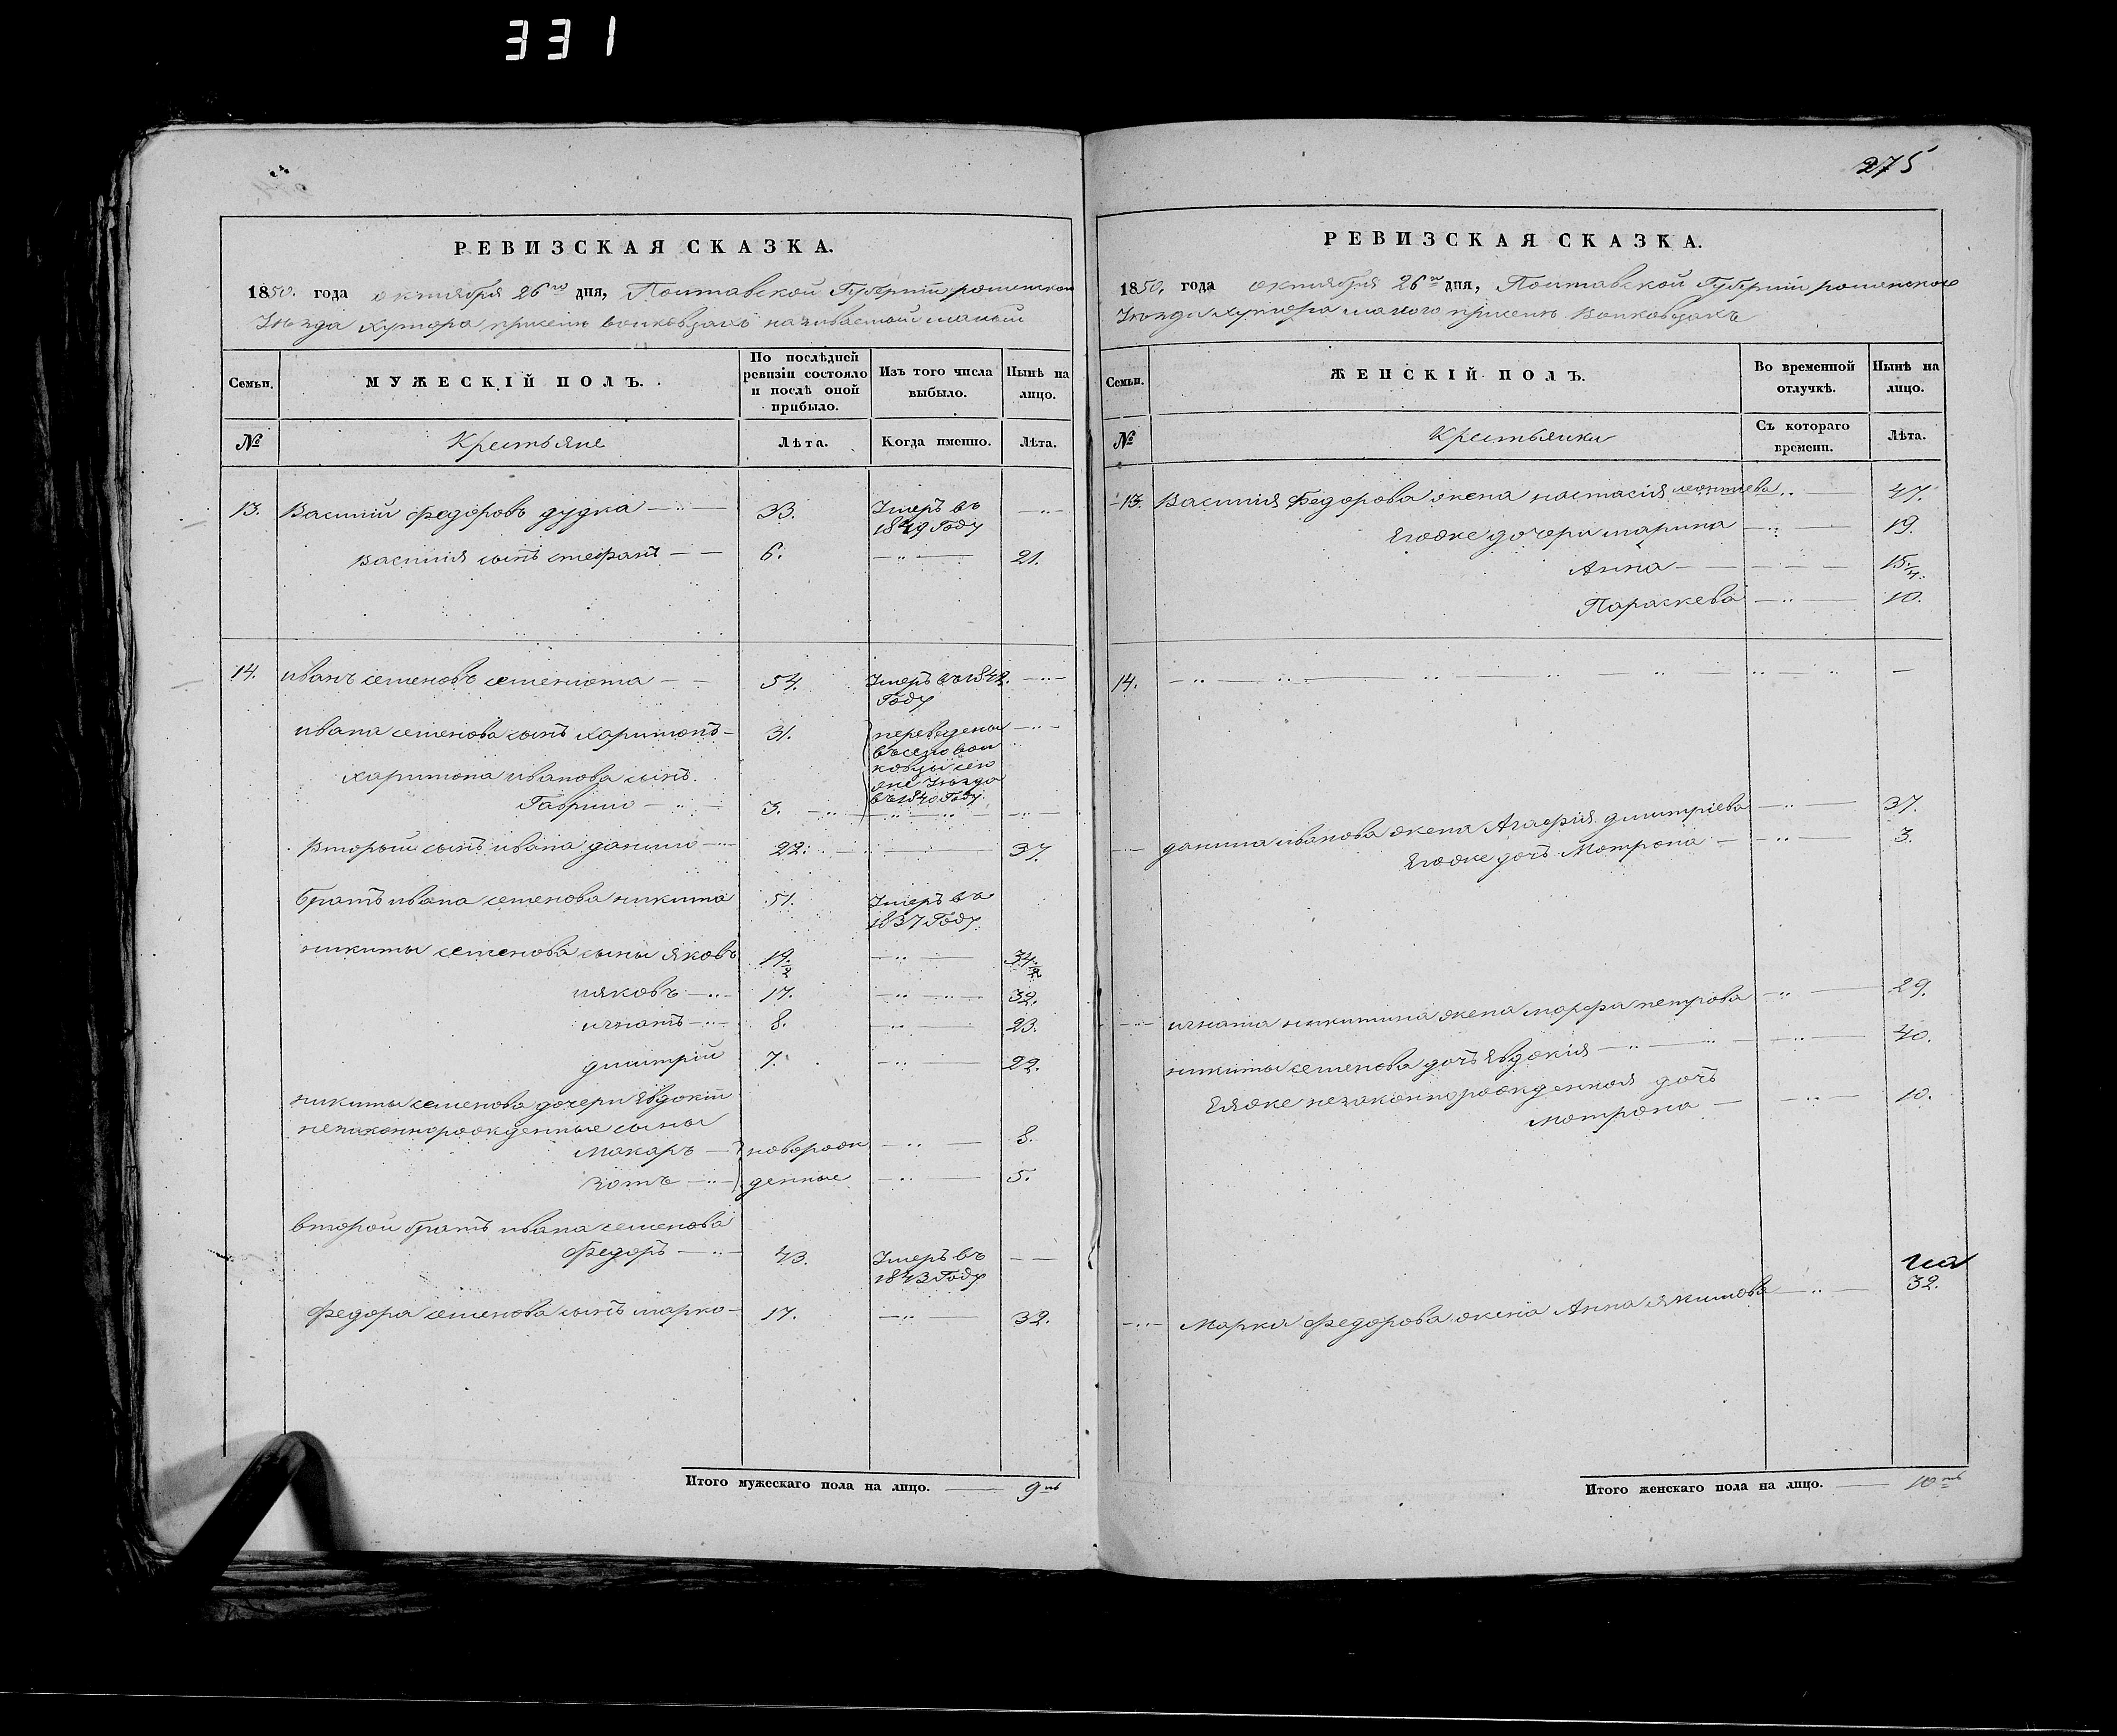 331
РЕВИЗСКАЯ СКАЗКА.
1850. года октября 26го дня, Полтавской Губерніи роменского
Уезда Хутора присели волковцахъ называемый малый
Семьи.
МУЖЕСКІЙ ПОЛЪ.
По послѣдней ревизіи состояло и послѣ оной прибыло.
Изъ того числа выбыло.
Нынѣ на лицо.
№
Крестьяне
Лѣта.
Когда именно.
Лѣта.
13. Василій федоровъ дудка 33. Умеръ въ
1849 Году
Василія сынъ стефанъ 6. 21.
14. иванъ семеновъ семенюта 54. Умеръ въ 1842.
Году
ивана семенова сынъ харитонъ 31. переведены
въ село вол
харитона иванова сынъ ковцы сего
же Уезда
Гаврило 3. въ 1840 Году.
Второй сынъ ивана данило 22. 37.
братъ ивана семенова никита 51. Умеръ въ
1837 Году
никиты семенова сыны яковъ 19.½ 34.½
ияковъ 17. 32.
игнатъ 8. 23.
дмитрій 7. 22.
никиты семенова дочери Евдокіи
незаконнорожденные сыны
Макаръ новорож 8.
зотъ денные 5.
второй братъ ивана семенова
Федоръ 43. Умеръ въ
1843 Году
Федора семенова сынъ марко 17. 32.
Итого мужескаго пола на лицо. 9ть
275
РЕВИЗСКАЯ СКАЗКА.
1850. года октября 26го дня, Полтавской Губерніи роменского
Уезда Хутора малого присели Волковцахъ
Семьи.
ЖЕНСКІЙ ПОЛЪ.
Во временной отлучкѣ.
Нынѣ на лицо.
№
Крестьянки
Съ котораго времени.
Лѣта.
13. Василія Федорова жена настасія леонтиева 47.
Егоже дочери марина 19.
Анна 15.¼.
Параскева 10.
14.
данила иванова жена Агафія дмитріева 37.
Егоже дочь Мотрона 3.
игната никитина жена марфа петрова 29.
никиты семенова дочь Евдокія 40.
Еяже незаконнорожденная дочь
мотрона 10.
Марка федорова жена Анна якимова 32.
Итого женскаго пола на лицо. 10ть